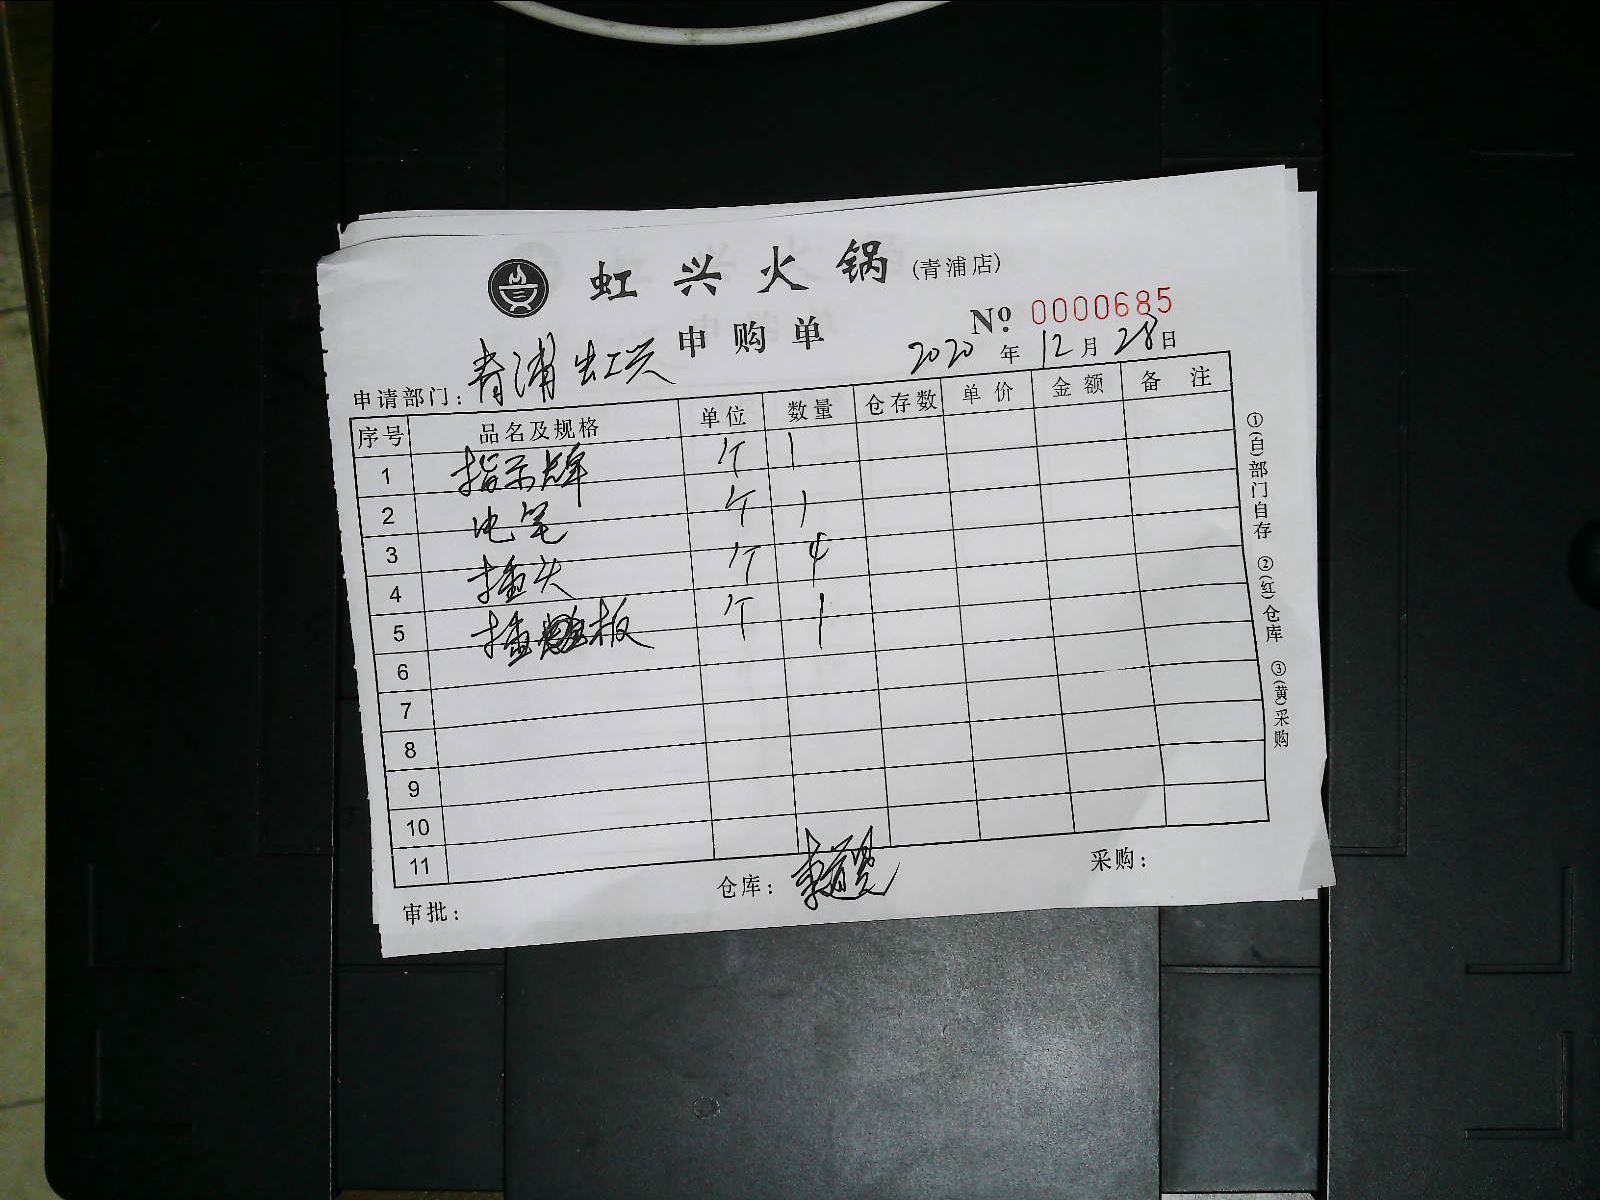 虹兴火锅(青浦店)
申购单
№ 0000685
申请部门: 青浦虹兴
2020年12月28日
序号 品名及规格 单位 数量 仓存数 单价 金额 备注
1 指示牌 个 1
2 电笔 个 1
3 插头 个 4
4 插 板 个 1
5
6
7
8
9
10
11
审批:
仓库:
采购:
①(白)部门自存 ②(红)仓库 ③(黄)采购